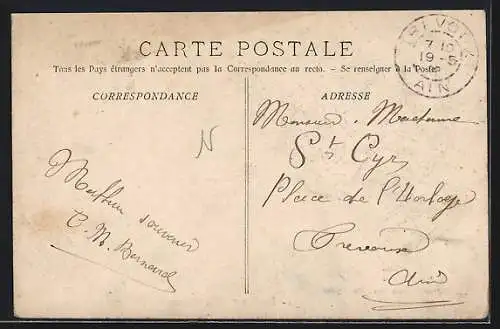 CARTE POSTALE
Tous les Pays étrangers n'acceptent pas la Correspondance au recto. - Se renseigner à la Poste
CORRESPONDANCE
ADRESSE
7 15
19 -5
AIN
N
Meilleur souvenir
C. M. Bernard
Monsieur. Madame
St Cyr
Place de l'Horloge
Ain